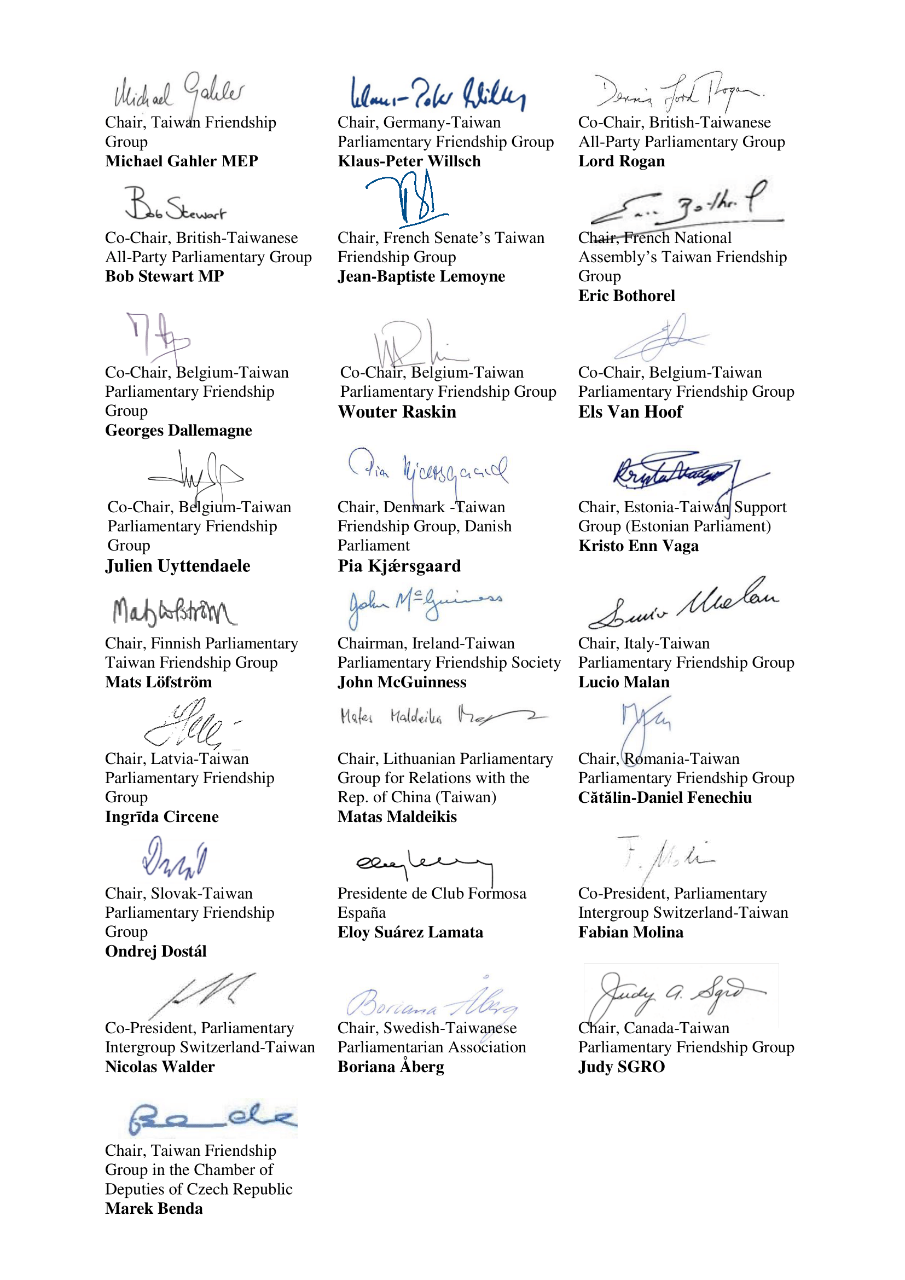 Michael Gahler
Chair, Taiwan Friendship
Group
Michael Gahler MEP
Klaus-Peter Willsch
Chair, Germany-Taiwan
Parliamentary Friendship Group
Klaus-Peter Willsch
Dennis Lord Rogan
Co-Chair, British-Taiwanese
All-Party Parliamentary Group
Lord Rogan
Bob Stewart
Co-Chair, British-Taiwanese
All-Party Parliamentary Group
Bob Stewart MP
Chair, French Senate's Taiwan
Friendship Group
Jean-Baptiste Lemoyne
Eric Bothorel
Chair, French National
Assembly's Taiwan Friendship
Group
Eric Bothorel
Co-Chair, Belgium-Taiwan
Parliamentary Friendship
Group
Georges Dallemagne
Co-Chair, Belgium-Taiwan
Parliamentary Friendship Group
Wouter Raskin
Co-Chair, Belgium-Taiwan
Parliamentary Friendship Group
Els Van Hoof
Co-Chair, Belgium-Taiwan
Parliamentary Friendship
Group
Julien Uyttendaele
Pia Kjærsgaard
Chair, Denmark -Taiwan
Friendship Group, Danish
Parliament
Pia Kjǽrsgaard
Chair, Estonia-Taiwan Support
Group (Estonian Parliament)
Kristo Enn Vaga
Mats Löfström
Chair, Finnish Parliamentary
Taiwan Friendship Group
Mats Löfström
John McGuinness
Chairman, Ireland-Taiwan
Parliamentary Friendship Society
John McGuinness
Lucio Malan
Chair, Italy-Taiwan
Parliamentary Friendship Group
Lucio Malan
Chair, Latvia-Taiwan
Parliamentary Friendship
Group
Ingrīda Circene
Matas Maldeikis
Chair, Lithuanian Parliamentary
Group for Relations with the
Rep. of China (Taiwan)
Matas Maldeikis
Chair, Romania-Taiwan
Parliamentary Friendship Group
Cătălin-Daniel Fenechiu
Chair, Slovak-Taiwan
Parliamentary Friendship
Group
Ondrej Dostál
Presidente de Club Formosa
España
Eloy Suárez Lamata
F. Molina
Co-President, Parliamentary
Intergroup Switzerland-Taiwan
Fabian Molina
Co-President, Parliamentary
Intergroup Switzerland-Taiwan
Nicolas Walder
Boriana Åberg
Chair, Swedish-Taiwanese
Parliamentarian Association
Boriana Åberg
Judy A. Sgro
Chair, Canada-Taiwan
Parliamentary Friendship Group
Judy SGRO
Benda
Chair, Taiwan Friendship
Group in the Chamber of
Deputies of Czech Republic
Marek Benda